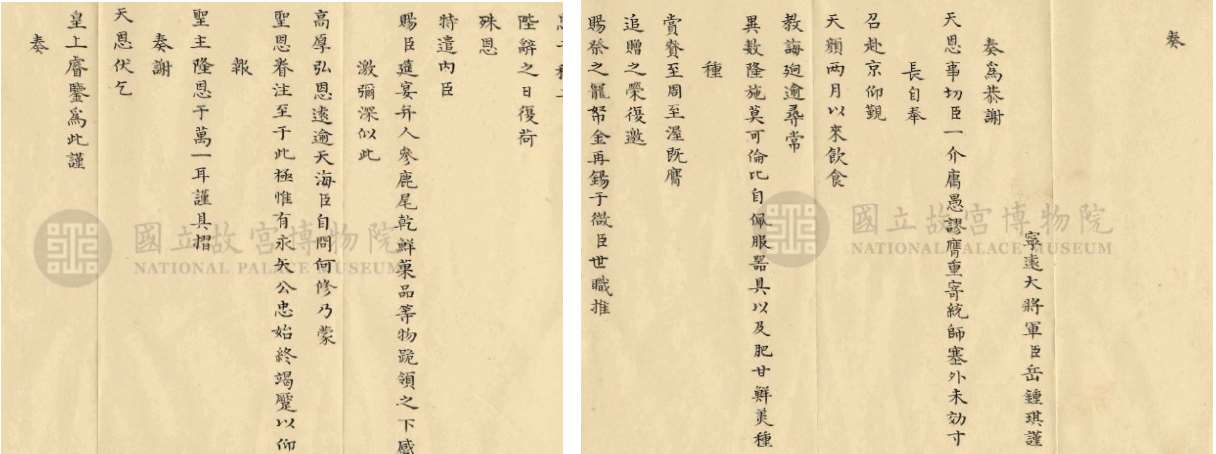 奏
寧遠大將軍臣岳鍾琪謹
奏爲恭謝
天恩事切臣一介庸愚謬膺重寄統師塞外未効寸
長自奉
召赴京仰覲
天顏兩月以來飲食
教誨迥逾尋常
異數隆施莫可倫比自佩服器具以及肥甘鮮美種
種
賞賚至周至渥既膺
追贈之榮復邀
賜祭之寵帑金再錫于微臣世職推
陛辭之日復荷
殊恩
特遣內臣
賜臣筵宴并人參鹿尾乾鮮菓品等物跪領之下感
激彌深似此
高厚弘恩遠逾天海臣自問何修乃蒙
聖恩眷注至于此極惟有永矢公忠始終竭蹷以仰
報
聖主隆恩于萬一耳謹具摺
奏謝
天恩伏乞
皇上睿鑒爲此謹
奏
國立故宮博物院
NATIONAL PALACE MUSEUM
國立故宮博物院
NATIONAL PALACE MUSEUM